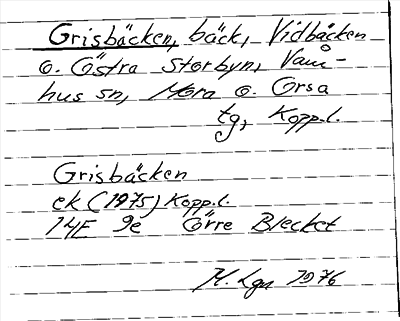 Grisbäcken, bäck, Vidbäcken
o. Östra Storbyn, Våm-
hus sn, Mora o. Orsa
tg, Kopp.l.
Grisbäcken
ek (1975) Kopp.l.
14E 9e Örre Blecket
M. Lgn 1976